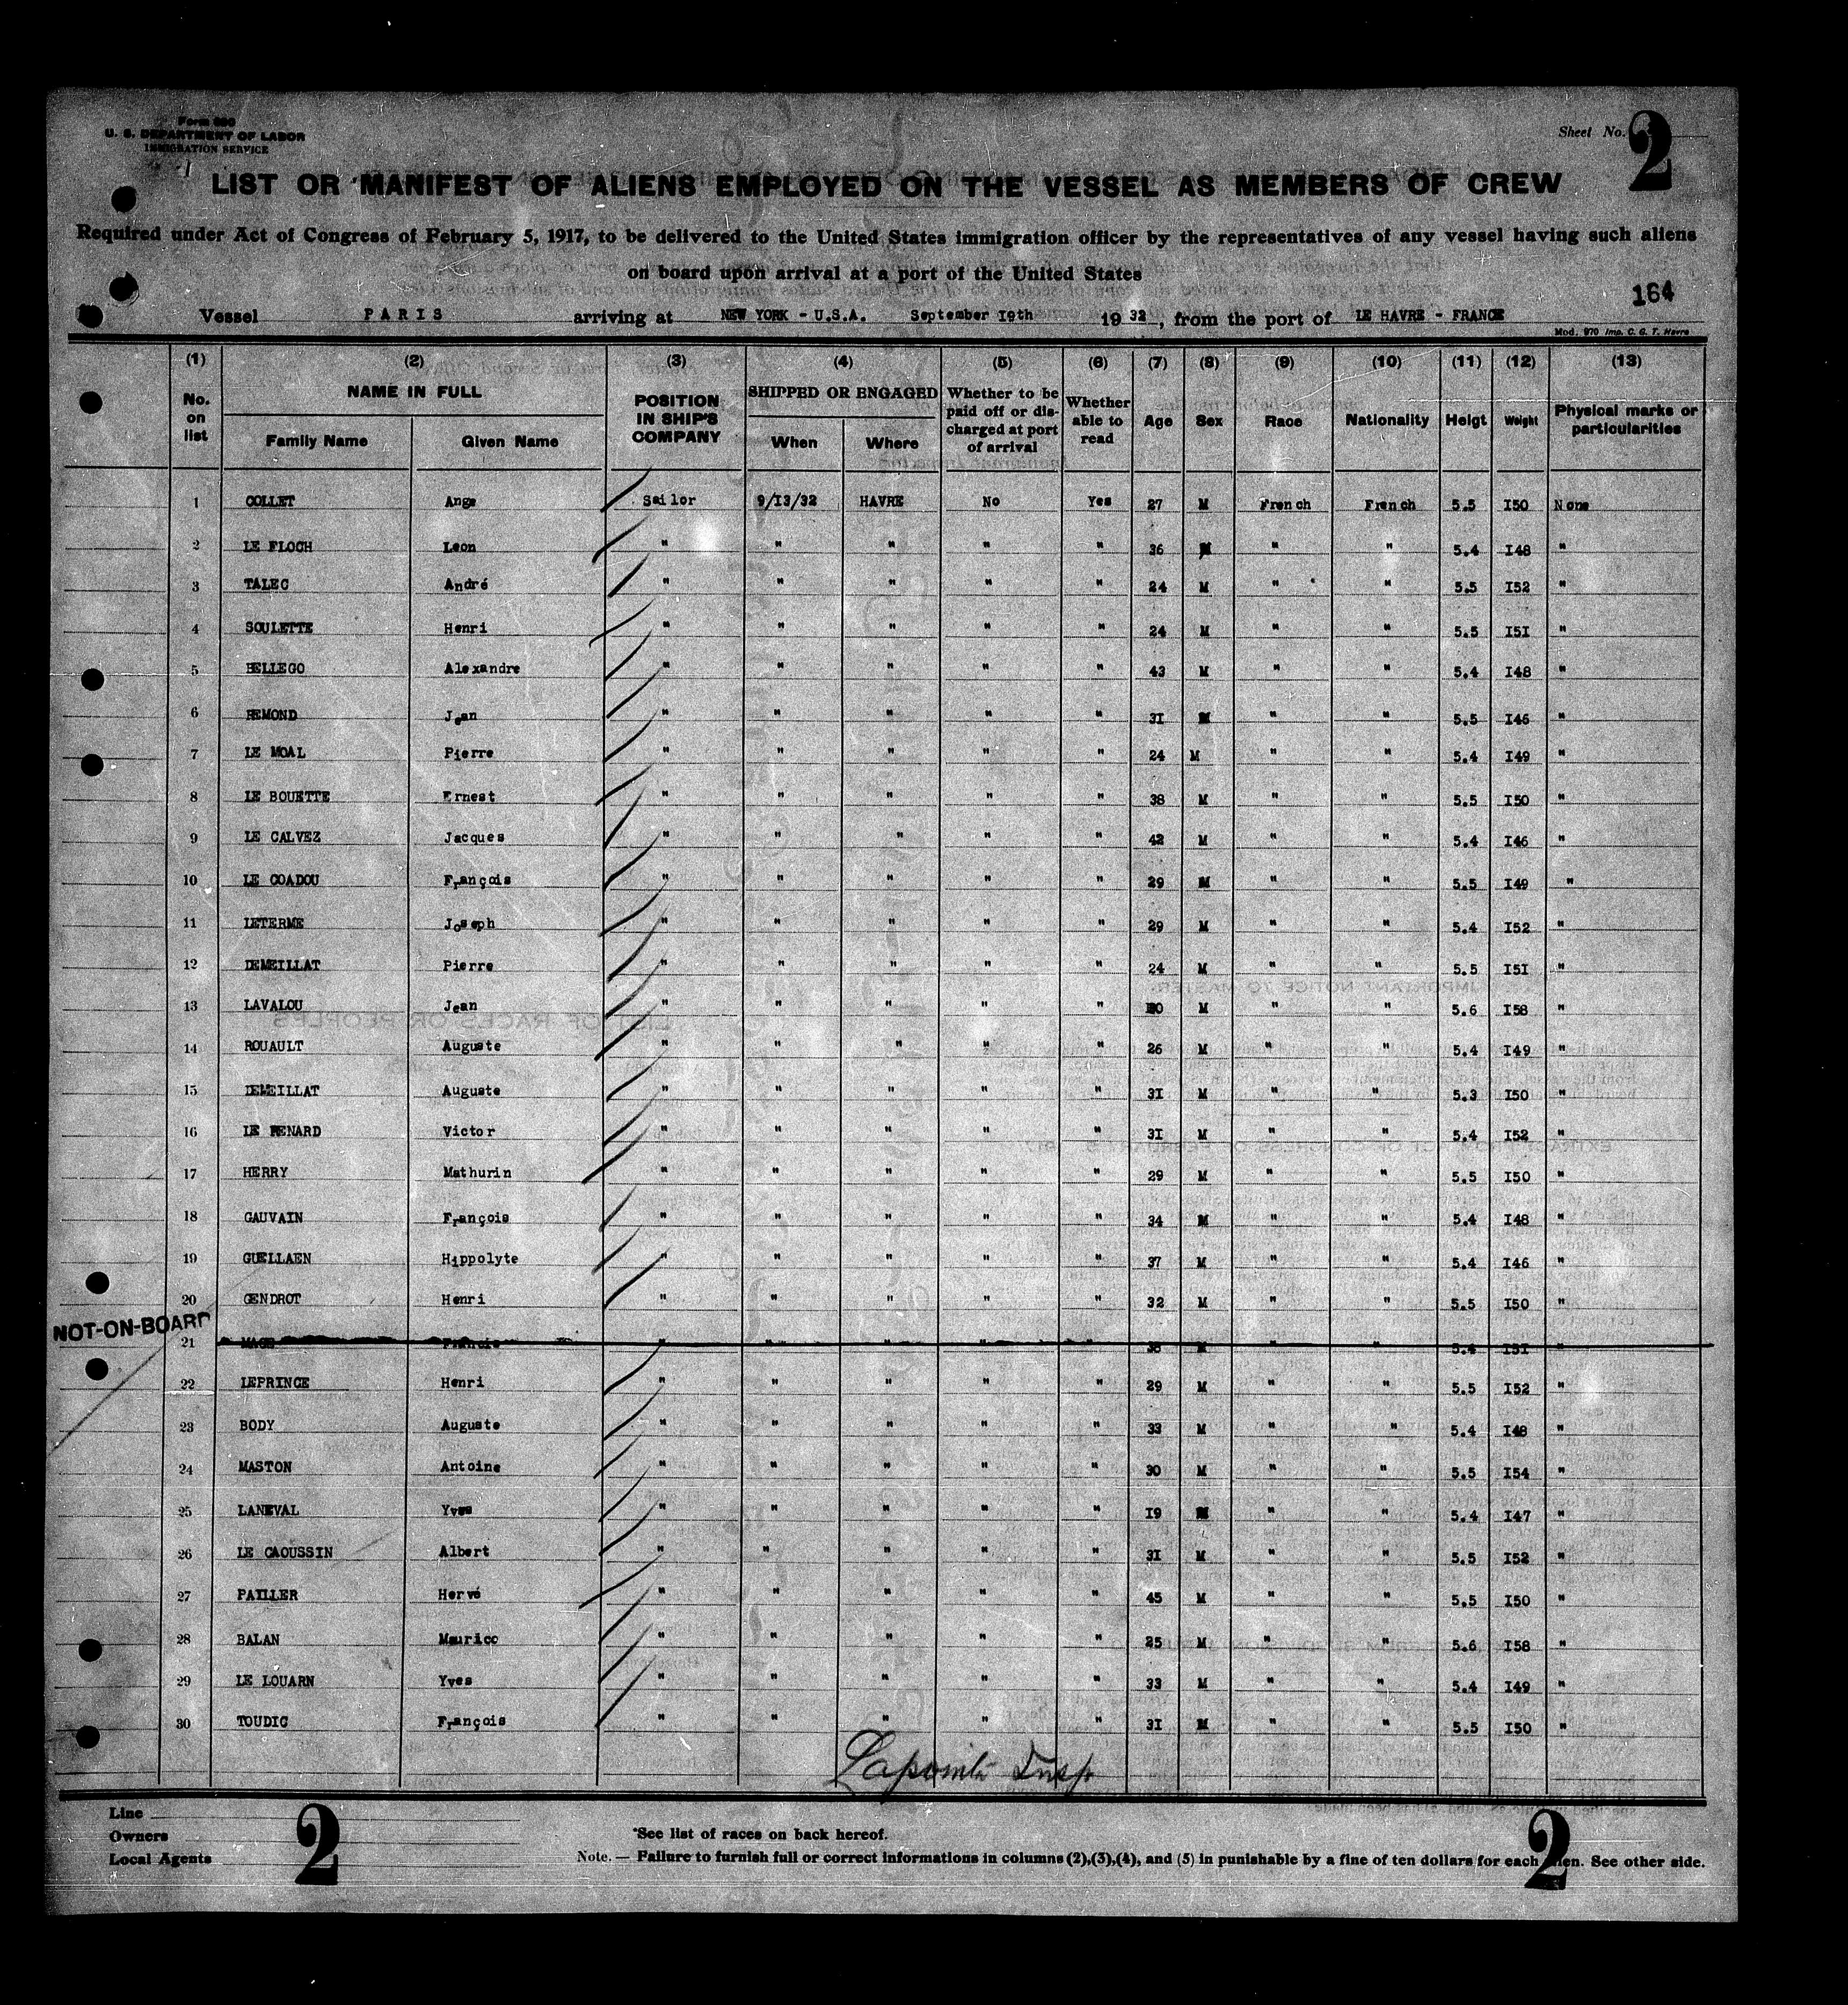 Form 680
U. S. DEPARTMENT OF LABOR
IMMIGRATION SERVICE
Sheet No. 2
LIST OR MANIFEST OF ALIENS EMPLOYED ON THE VESSEL AS MEMBERS OF CREW
Required under Act of Congress of February 5, 1917, to be delivered to the United States immigration officer by the representatives of any vessel having such aliens
on board upon arrival at a port of the United States
164
Vessel PARIS arriving at NEW YORK - U.S.A. September I9th 19 32, from the port of LE HAVRE - FRANCE
Mod. 970 Imp. C. G. T. Havre
(1) (2) (3) (4) (5) (6) (7) (8) (9) (10) (11) (12) (13)
No. on list NAME IN FULL Family Name Given Name POSITION IN SHIP'S COMPANY SHIPPED OR ENGAGED When Where Whether to be paid off or dis- charged at port of arrival Whether able to read Age Sex Race Nationality Heigt Weight Physical marks or particularities
1 COLLET Ange Sailor 9/I3/32 HAVRE No Yes 27 M French French 5.5 I50 None
2 LE FLOCH Leon " " " " " 36 M " " 5.4 I48 "
3 TALEC André " " " " " 24 M " " 5.5 I52 "
4 SOULETTE Henri " " " " " 24 M " " 5.5 I5I "
5 BELLEGO Alexandre " " " " " 43 M " " 5.4 I48 "
6 REMOND Jean " " " " " 3I M " " 5.5 I46 "
7 LE MOAL Pierre " " " " " 24 M " " 5.4 I49 "
8 LE BOUETTE Ernest " " " " " 38 M " " 5.5 I50 "
9 LE CALVEZ Jacques " " " " " 42 M " " 5.4 I46 "
10 LE COADOU François " " " " " 29 M " " 5.5 I49 "
11 LETERME Joseph " " " " " 29 M " " 5.4 I52 "
12 DEMEILLAT Pierre " " " " " 24 M " " 5.5 I5I "
13 LAVALOU Jean " " " " " M " " 5.6 I58 "
14 ROUAULT Auguste " " " " " 26 M " " 5.4 I49 "
15 DEMEILLAT Auguste " " " " " 3I M " " 5.3 I50 "
16 LE RENARD Victor " " " " " 3I M " " 5.4 I52 "
17 HERRY Mathurin " " " " " 29 M " " 5.5 I50 "
18 GAUVAIN François " " " " " 34 M " " 5.4 I48 "
19 GUELLAEN Hippolyte " " " " " 37 M " " 5.4 I46 "
20 GENDROT Henri " " " " " 32 M " " 5.5 I50 "
NOT-ON-BOARD
21 " " " " " M " " 5.4 I5I "
22 LEPRINCE Henri " " " " " 29 M " " 5.5 I52 "
23 BODY Auguste " " " " " 33 M " " 5.4 I48 "
24 MASTON Antoine " " " " " 30 M " " 5.5 I54 "
25 LANEVAL Yves " " " " " I9 M " " 5.4 I47 "
26 LE CAOUSSIN Albert " " " " " 3I M " " 5.5 I52 "
27 PAILLER Hervé " " " " " 45 M " " 5.5 I50 "
28 BALAN Maurice " " " " " 25 M " " 5.6 I58 "
29 LE LOUARN Yves " " " " " 33 M " " 5.4 I49 "
30 TOUDIC François " " " " " 3I M " " 5.5 I50 "
Insp
Line
Owners
Local Agents
2
*See list of races on back hereof.
Note. — Failure to furnish full or correct informations in columns (2),(3),(4), and (5) in punishable by a fine of ten dollars for each alien. See other side.
2